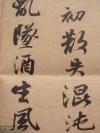 初散失混沌
亂墜酒生風